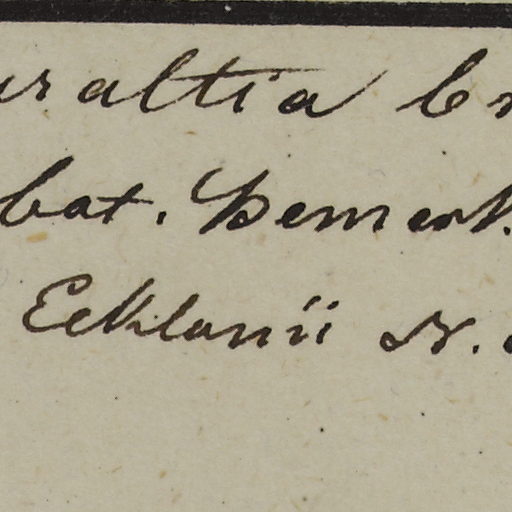 uraltia
bot. Bemerk.
Ecklonii N.